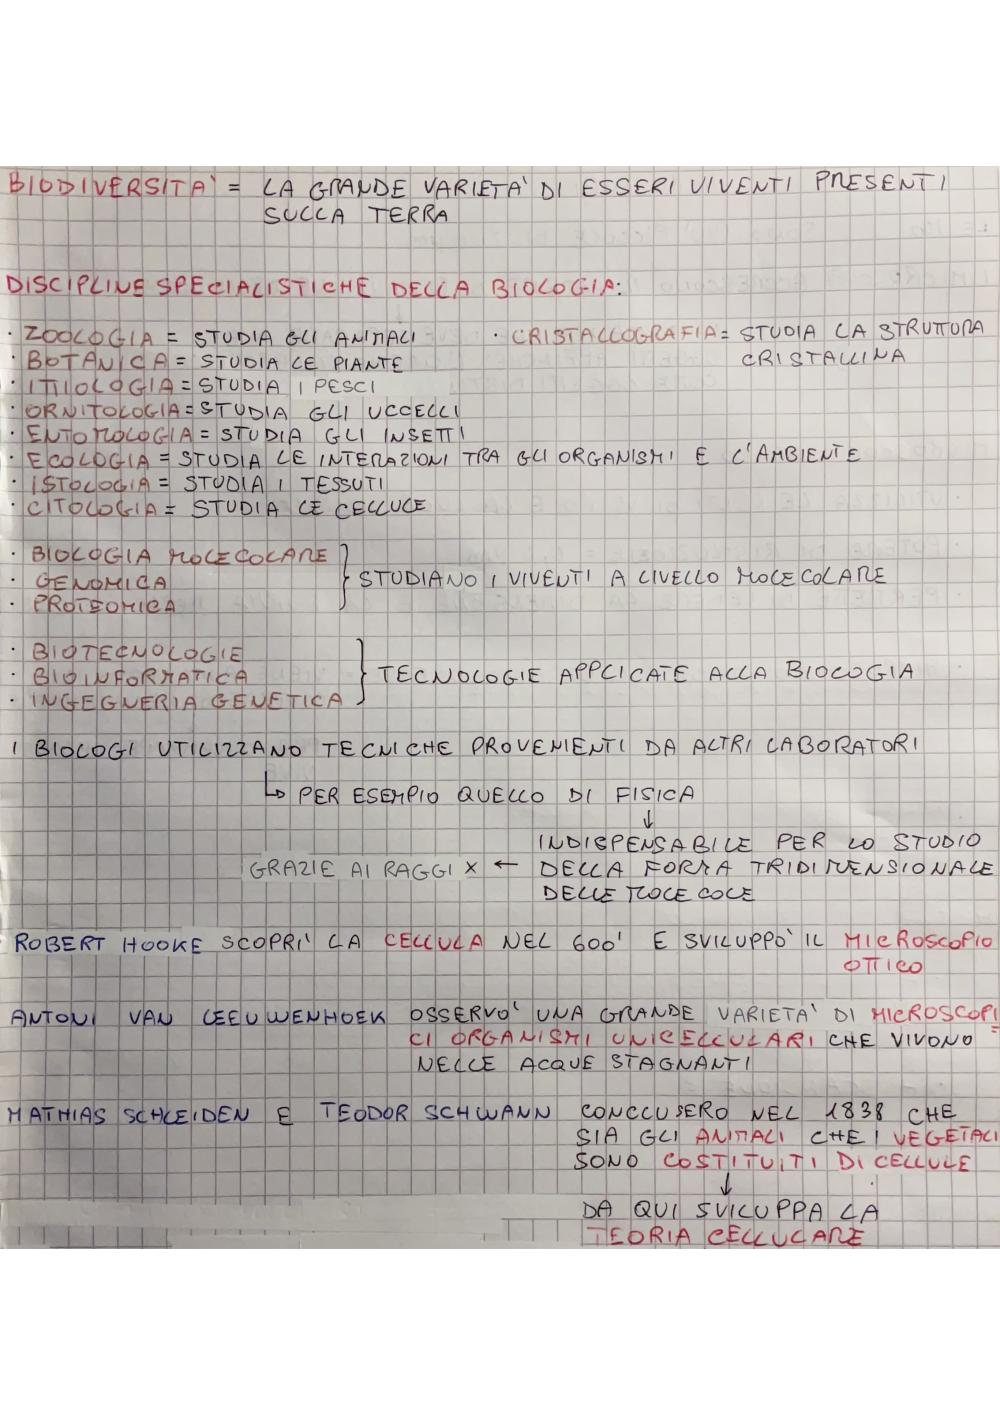 BIODIVERSITA' = LA GRANDE VARIETA' DI ESSERI VIVENTI PRESENTI
SULLA TERRA
DISCIPLINE SPECIALISTICHE DELLA BIOLOGIA:
· ZOOLOGIA = STUDIA GLI ANIMALI
· CRISTALLOGRAFIA = STUDIA LA STRUTTURA
CRISTALLINA
· BOTANICA = STUDIA LE PIANTE
· ITTIOLOGIA = STUDIA I PESCI
· ORNITOLOGIA = STUDIA GLI UCCELLI
· ENTOMOLOGIA = STUDIA GLI INSETTI
· ECOLOGIA = STUDIA LE INTERAZIONI TRA GLI ORGANISMI E L'AMBIENTE
· ISTOLOGIA = STUDIA I TESSUTI
· CITOLOGIA = STUDIA LE CELLULE
· BIOLOGIA MOLECOLARE
· GENOMICA
· PROTEOMICA
} STUDIANO I VIVENTI A LIVELLO MOLECOLARE
· BIOTECNOLOGIE
· BIOINFORMATICA
· INGEGNERIA GENETICA
} TECNOLOGIE APPLICATE ALLA BIOLOGIA
I BIOLOGI UTILIZZANO TECNICHE PROVENIENTI DA ALTRI LABORATORI
↳ PER ESEMPIO QUELLO DI FISICA
↓
INDISPENSABILE PER LO STUDIO
GRAZIE AI RAGGI X ← DELLA FORMA TRIDIMENSIONALE
DELLE MOLECOLE
ROBERT HOOKE SCOPRI' LA CELLULA NEL 600' E SVILUPPO' IL MICROSCOPIO
OTTICO
ANTONI VAN LEEUWENHOEK OSSERVO' UNA GRANDE VARIETA' DI MICROSCOPI=
CI ORGANISMI UNICELLULARI CHE VIVONO
NELLE ACQUE STAGNANTI
MATHIAS SCHLEIDEN E TEODOR SCHWANN CONCLUSERO NEL 1838 CHE
SIA GLI ANIMALI CHE I VEGETALI
SONO COSTITUITI DI CELLULE
↓
DA QUI SVILUPPA LA
TEORIA CELLULARE